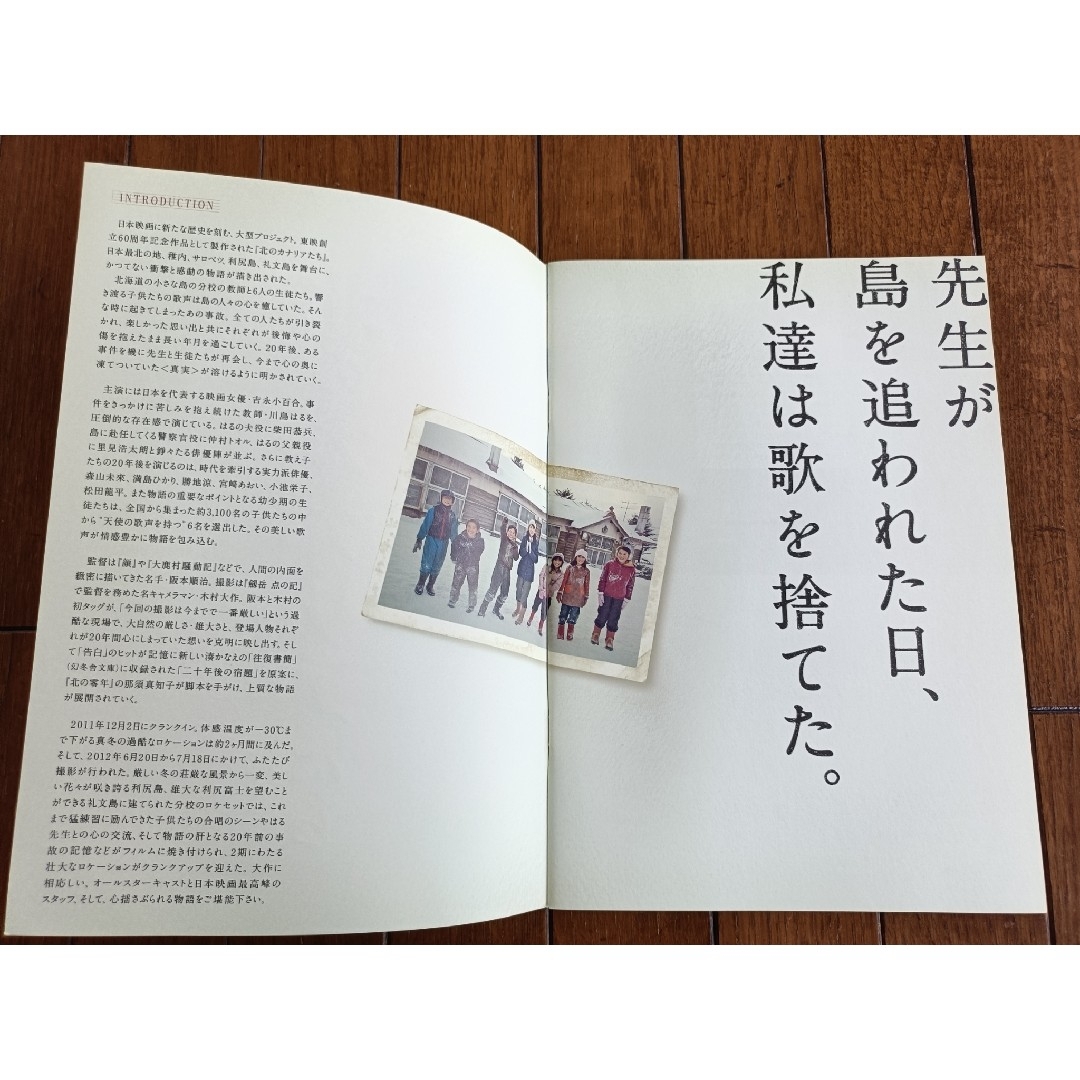 INTRODUCTION
日本映画に新たな歴史を刻む、大型プロジェクト。東映創
立60周年記念作品として製作された『北のカナリアたち』。
日本最北の地、稚内、サロベツ、利尻島、礼文島を舞台に、
かつてない衝撃と感動の物語が描き出された。
北海道の小さな島の分校の教師と6人の生徒たち。響
き渡る子供たちの歌声は島の人々の心を癒していた。そん
な時に起きてしまったあの事故。全ての人たちが引き裂
かれ、楽しかった思い出と共にそれぞれが後悔や心の
傷を抱えたまま長い年月を過ごしていく。20年後、ある
事件を機に先生と生徒たちが再会し、今まで心の奥に
凍てついていた＜真実＞が溶けるように明かされていく。
主演には日本を代表する映画女優・吉永小百合。事
件をきっかけに苦しみを抱え続けた教師・川島はるを、
圧倒的な存在感で演じている。はるの夫役に柴田恭兵、
島に赴任してくる警察官役に仲村トオル、はるの父親役
に里見浩太朗と錚々たる俳優陣が並ぶ。さらに教え子
たちの20年後を演じるのは、時代を牽引する実力派俳優、
森山未來、満島ひかり、勝地涼、宮﨑あおい、小池栄子、
松田龍平。また物語の重要なポイントとなる幼少期の生
徒たちは、全国から集まった約3,100名の子供たちの中
から“天使の歌声を持つ”6名を選出した。その美しい歌
声が情感豊かに物語を包み込む。
監督は『顔』や『大鹿村騒動記』などで、人間の内面を
緻密に描いてきた名手・阪本順治。撮影は『劔岳 点の記』
で監督を務めた名キャメラマン・木村大作。阪本と木村の
初タッグが、「今回の撮影は今までで一番厳しい」という過
酷な現場で、大自然の厳しさ・雄大さと、登場人物それぞ
れが20年間心にしまっていた想いを克明に映し出す。そし
て『告白』のヒットが記憶に新しい湊かなえの『往復書簡』
（幻冬舎文庫）に収録された「二十年後の宿題」を原案に、
『北の零年』の那須真知子が脚本を手がけ、上質な物語
が展開されていく。
2011年12月2日にクランクイン。体感温度が－30℃ま
で下がる真冬の過酷なロケーションは約2ヶ月間に及んだ。
そして、2012年6月20日から7月18日にかけて、ふたたび
撮影が行われた。厳しい冬の荘厳な風景から一変、美し
い花々が咲き誇る利尻島、雄大な利尻富士を望むこと
ができる礼文島に建てられた分校のロケセットでは、これ
まで猛練習に励んできた子供たちの合唱のシーンやはる
先生との心の交流、そして物語の肝となる20年前の事
故の記憶などがフィルムに焼き付けられ、2期にわたる
壮大なロケーションがクランクアップを迎えた。大作に
相応しい、オールスターキャストと日本映画最高峰の
スタッフ、そして、心揺さぶられる物語をご堪能下さい。
先生が
島を追われた日、
私達は歌を捨てた。